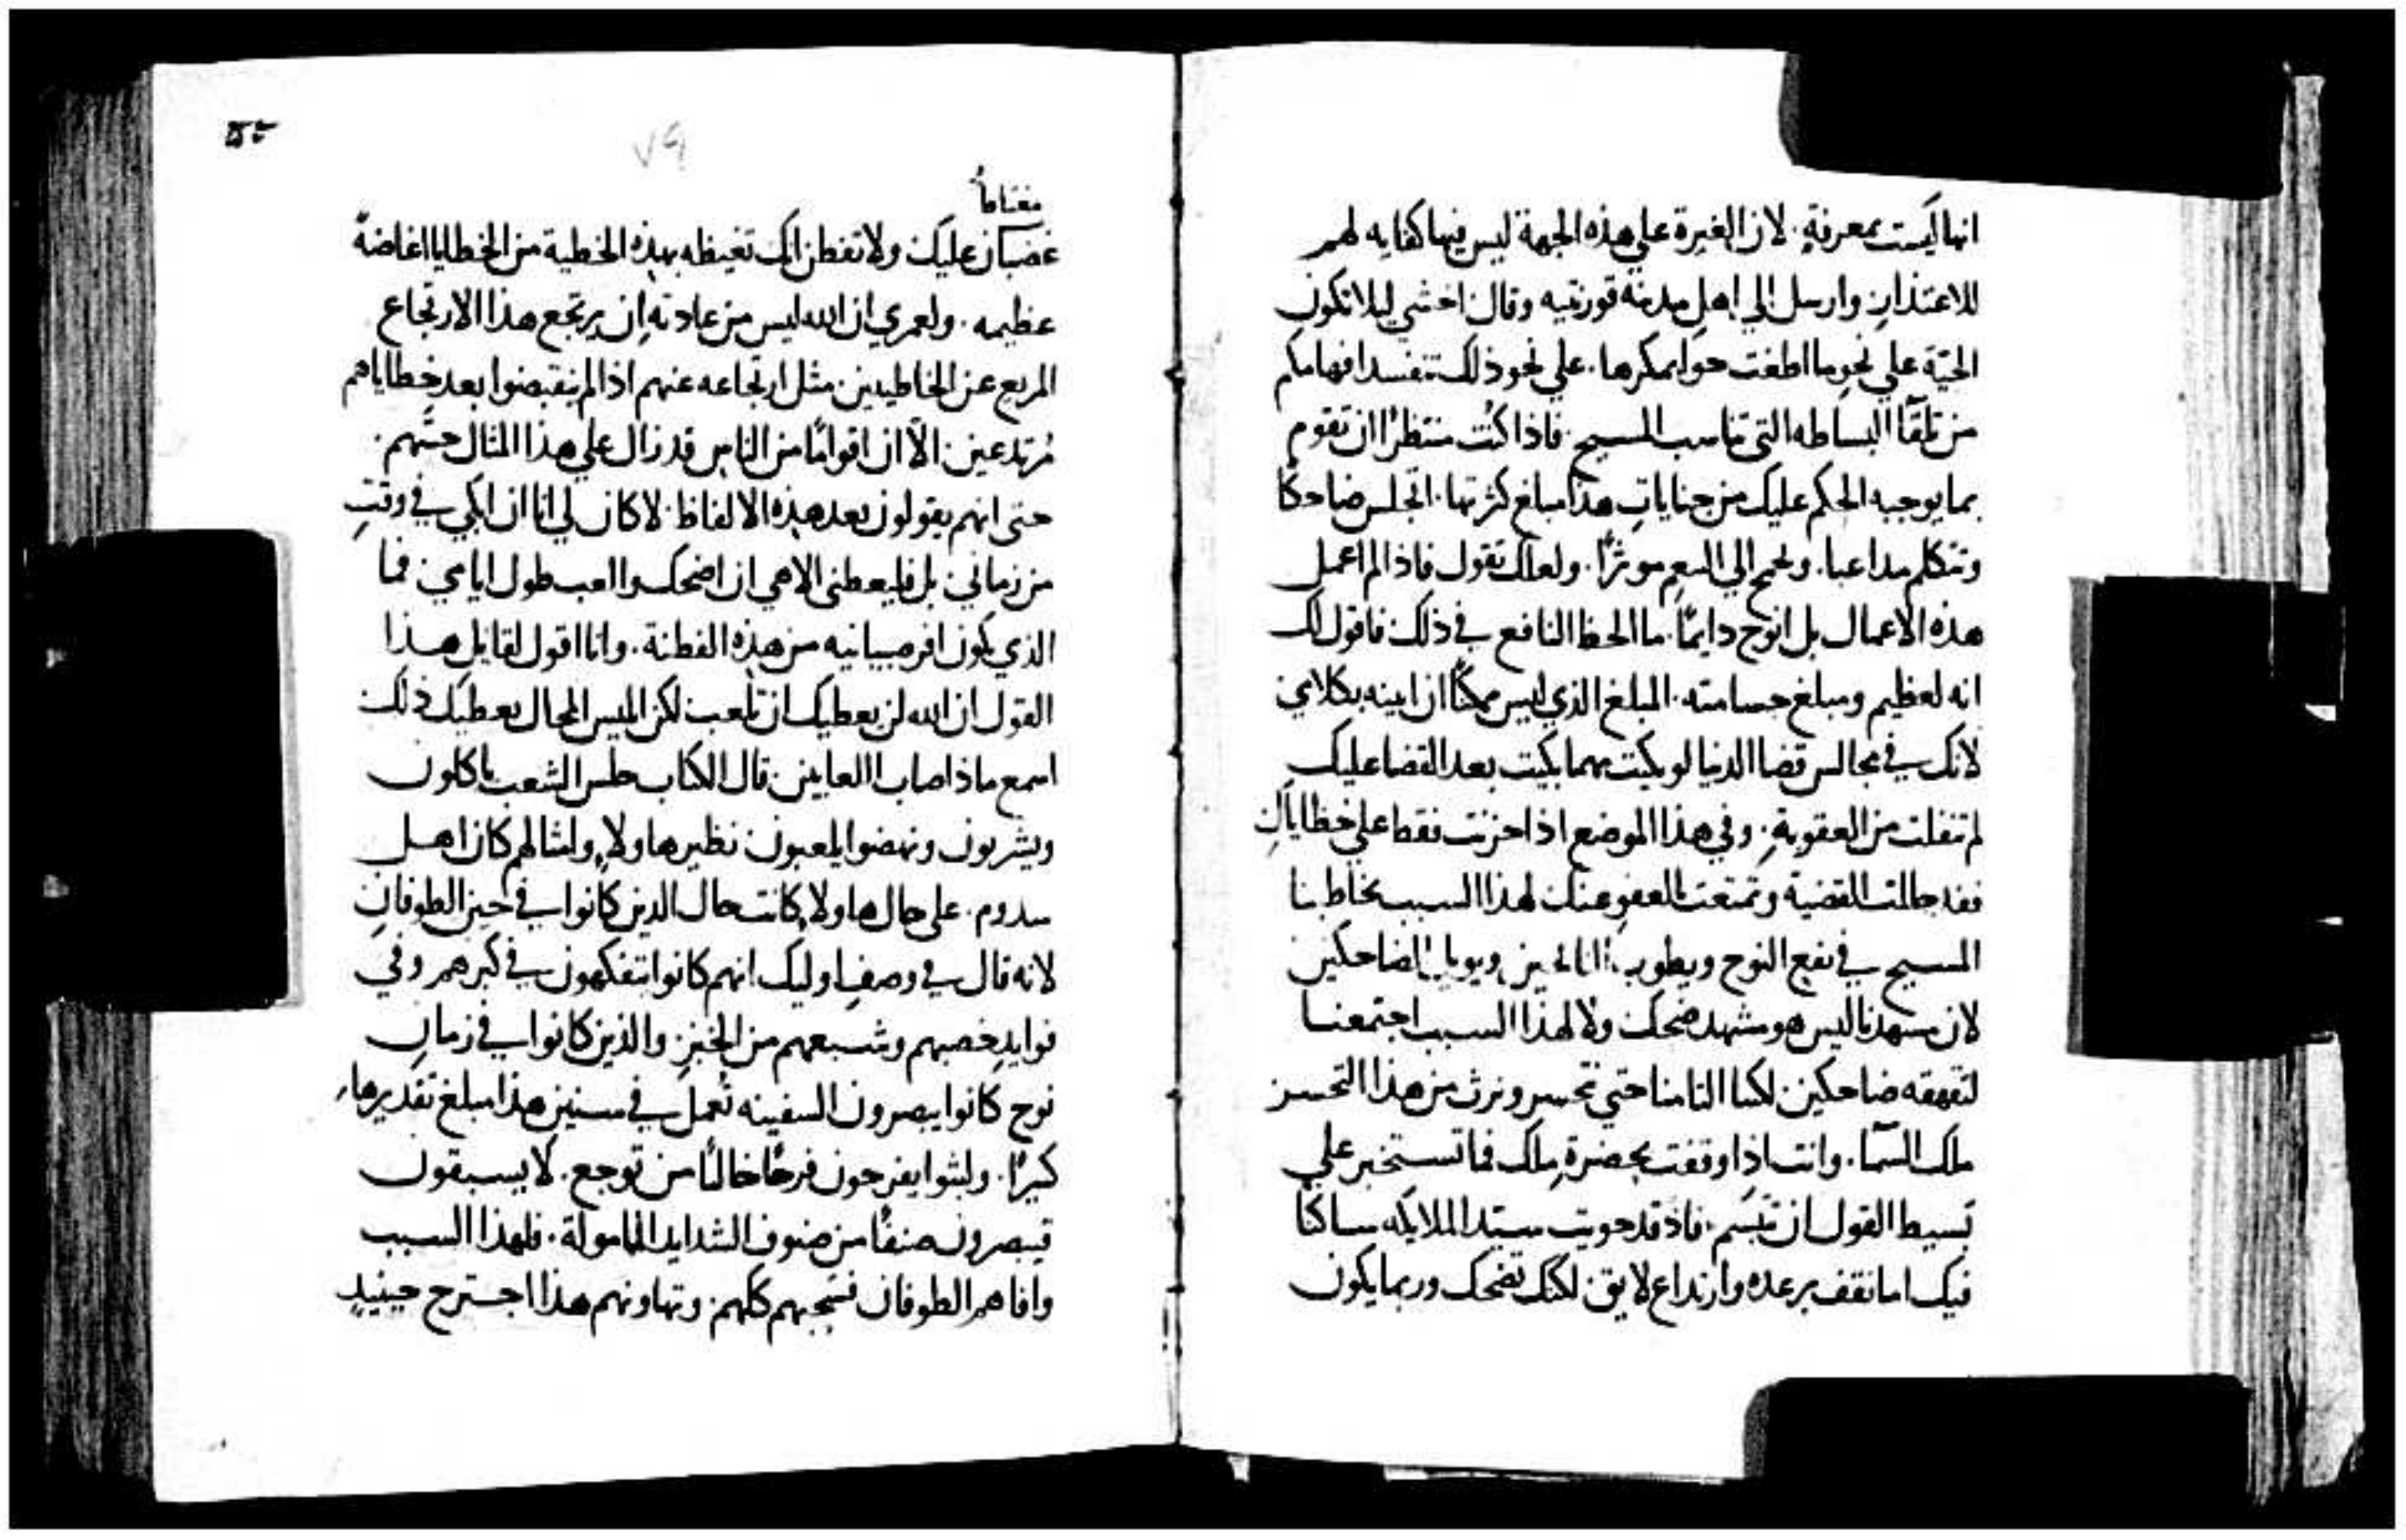 انها ليست بمعرفةٍ. لان الغيرة علي هذه الجهة ليس فيها كفايه لهم
للاعتذار وارسل الي اهل مدينه قورنتيه وقال اخشي ليلا تكون
الحيّة علي نحو ما اطغت حوا بمكرها. علي نحو ذلك تنفسد افهامكم
من تلقآ البساطه التي تناسب المسيح. فاذا كُنت منتظرًا ان تقوم
بما يوجبه الحكم عليك من جناياتٍ هذا مبلغ كثرتها. اتجلس ضاحكًا
وتتكلم مداعبا. الي النعم موثرًا. ولعلك تقول فاذا لم اعمل
هذه الاعمال بل انوح دايمًا. ما الحظ النافع في ذلك فاقول لك
انه لعظيم ومبلغ جسامته. المبلغ الذي ليس ممكنًا ان ابينه بكلامي
لانك في مجالس قضا الدنيا لو بكيت مهما بكيت بعد القضا عليك
لم تنفلت من العقوبةِ. وفي هذا الموضع اذا حزنت فقط علي خطاياك
فقد القضية وتمتعت بالعفو عنك لهذا السبب يخاطبنا
المسيح في نفع النوح ويطوب ويويل الضاحكين
لان مشهدنا ليس هو مشهد ضحك ولا لهذا السبب اجتمعنا
لنقهقه ضاحكين لكنا التامنا حتي نتحسر ونرث من هذا التحسر
ملك السمآ. وانت اذا وقفت بحضرة ملك فما تستخبر علي
بسيط القول ان تبسّم. فاذ قد حويت سيّد الملايكه ساكنًا
فيك اما تقف برعده وارتداع لايق. لكنك تضحك وربما يكون
٧٩
مغتاظًا
غضبان عليك ولا تفطن انك تغيظه بهذه الخطية من الخطايا اغاضةً
عظيمه. ولعمري ان الله ليس من عادته ان يرتجع هذا الارتجاع
المريع عن الخاطيين. مثل ارتجاعه عنهم اذا لم ينقبضوا بعد خطاياهم
مُرتدعين. الّا ان اقوامًا من الناس قد زال علي هذا المثال حسّهم.
حتي انهم يقولون بعد هذه الالفاظ. لا كان لي انا ان ابكي في وقتٍ
من زماني. بل فليعطني الاهي ان اضحك والعب طول ايامي. فما
الذي يكون افر صبيانيه من هذه الفطنة. وانا اقول لقايل هذا
القول ان الله لن يعطيك ان تلعب لكن ابليس المحال يعطيك ذلك
اسمع ماذا اصاب اللعابين. قال الكتاب جلس الشعب ياكلون
ويشربون ونهضوا يلعبون. نظير هاولاء ولمثالهم كان اهل
سدوم. علي حال هاولاء كانت حال الذين كانوا في حين الطوفان
لانه قال في وصف اوليك انهم كانوا يتفكهون في كبرهم وفي
فوايد خصبهم وشبعهم من الخبز. والذين كانوا في زمان
نوح كانوا يبصرون السفينه تُعمل في سنين هذا مبلغ تقديرها.
كبيرًا. ولبثوا يفرحون فرحًا خاليًا من توجع. لا يسبقون
فيبصرون صنفًا من صنوف الشدايد المامولة. فلهذا السبب
وافاهم الطوفان فسحبهم كلهم. وتهاونهم هذا اجترح حينيدٍ